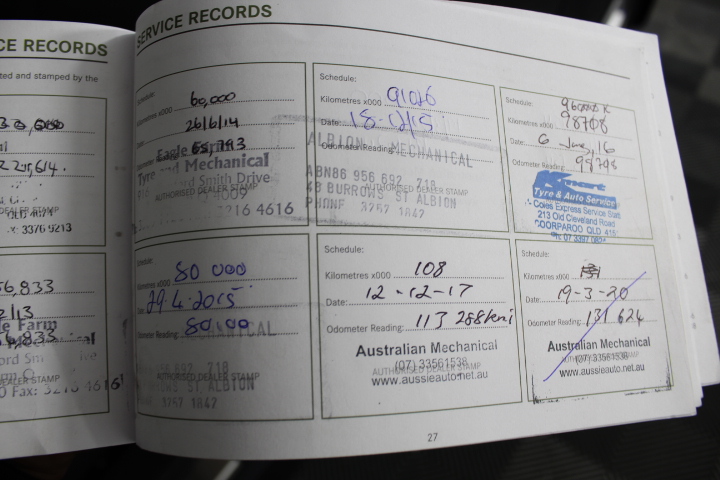 CE RECORDS
ted and stamped by the
DEALER STAMP
QLD 4074
: 3376 9213
6,833
le Farm
6,833
DEALER STAMP
Fax: 3216 4616
SERVICE RECORDS
Schedule: 60,000
Kilometres x000
Date: 26/6/14
Odometer Reading: 65,193
Eagle Farm
Tyre and Mechanical
rd Smith Drive
AUTHORISED DEALER STAMP
4009
3216 4616
Schedule:
Kilometres x000 91016
Date: 18.12/15
Odometer Reading:
ALBION MECHANICAL
ABN86 956 692 718
AUTHORISED DEALER STAMP
68 BURROWS ST ALBION
PHONE 3257 1842
Schedule:
Kilometres x000 98708
Date: 6 June, 16
Odometer Reading: 98706
Tyre & Auto Service
Coles Express Service Stati
213 Old Cleveland Road
COORPAROO QLD 415
Schedule:
Kilometres x000 80 000
Date: 29.4.2015
Odometer Reading: 80,00
MECHANICAL
956 692 718
AUTHORISED DEALER STAMP
BURROWS ST ALBION
3257 1842
Schedule:
Kilometres x000 108
Date: 12-12-17
Odometer Reading: 113 288km
Australian Mechanical
(07) 33561538
AUTHORISED DEALER STAMP
www.aussieauto.net.au
Schedule:
Kilometres x000
Date: 19-3-20
Odometer Reading: 131 624
Australian Mechanical
(07) 33561538
AUTHORISED DEALER STAMP
www.aussieauto.net.au
27